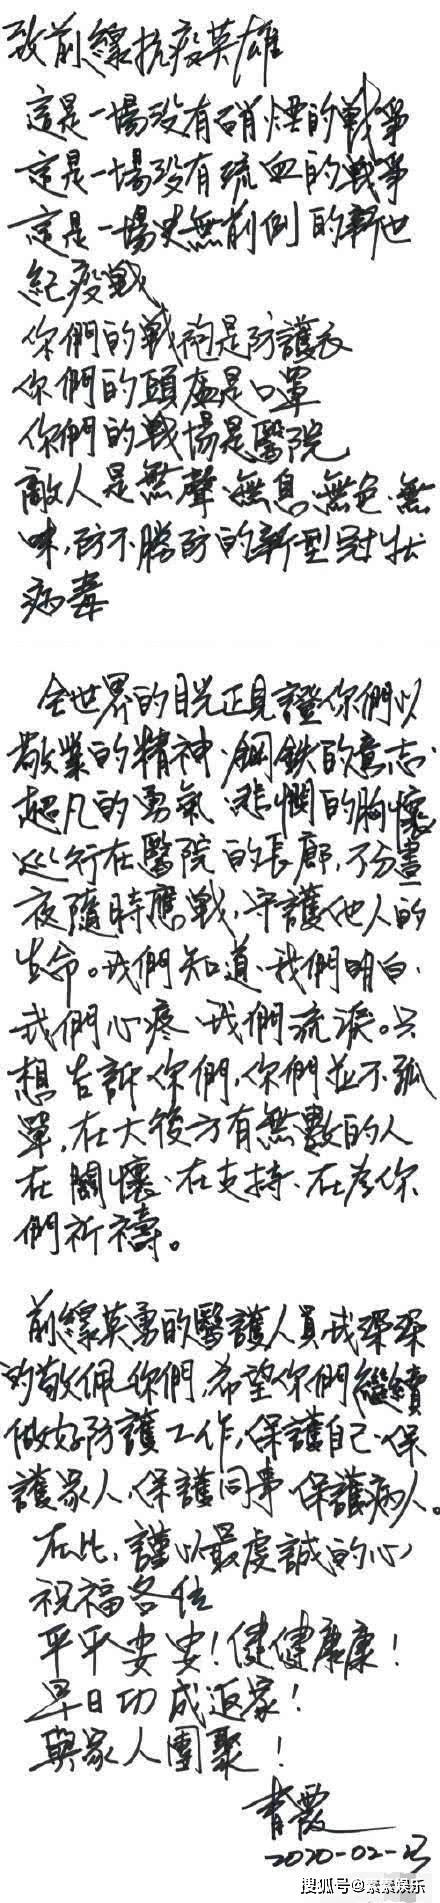 致前線抗疫英雄
這是一場沒有硝煙的戰爭
這是一場沒有流血的戰爭
這是一場史無前例的新世
紀疫戰
你們的戰袍是防護衣
你們的頭盔是口罩
你們的戰場是醫院
敵人是無聲、無息、無色、無
味,防不勝防的新型冠狀
病毒
全世界的目光正見證你們以
敬業的精神、鋼鐵的意志、
超凡的勇氣、悲憫的胸懷
巡行在醫院的長廊,不分晝
夜隨時應戰,守護他人的
生命。我們知道、我們明白、
我們心疼、我們流淚。只
想告訴你們,你們並不孤
單,在大後方有無數的人
在關懷、在支持、在為你
們祈禱。
前線英勇的醫護人員,我深深
的敬佩你們,希望你們繼續
做好防護工作,保護自己、保
護家人,保護同事、保護病人。
在此,謹以最虔誠的心
祝福各位
平平安安!健健康康!
早日功成返家!
與家人團聚!
青霞
2020-02-
搜狐号@素素娱乐